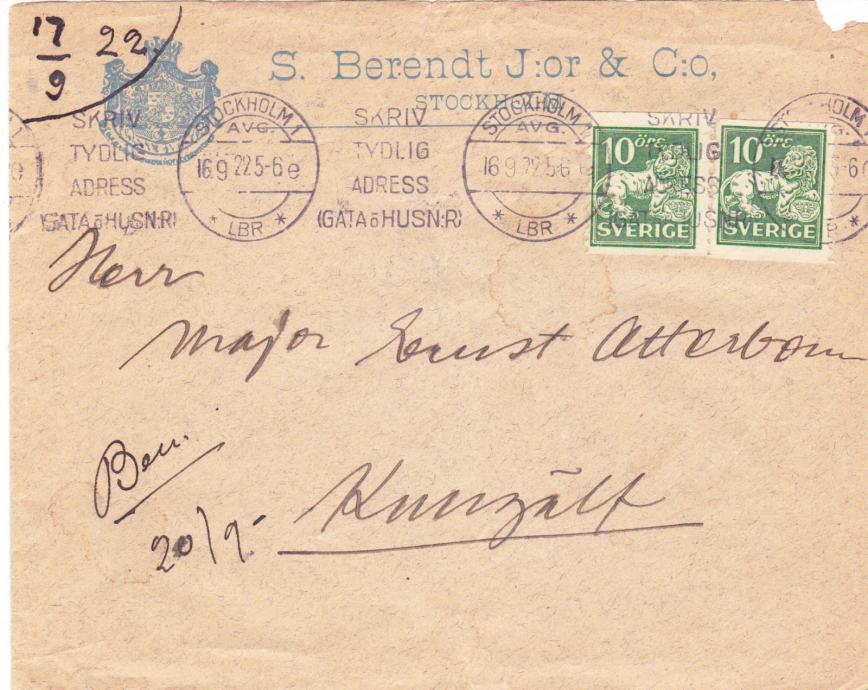 17/9 22
S. Berendt J:or & C:o,
STOCKHOLM
SKRIV TYDLIG ADRESS (GATA ö HUSN:R)
STOCKHOLM 1 AVG. 16 9 22 5-6 e * LBR *
SKRIV TYDLIG ADRESS (GATA ö HUSN:R)
STOCKHOLM 1 AVG. 16 9 22 5-6 e * LBR *
SKRIV TYDLIG ADRESS (GATA ö HUSN:R)
10 öre SVERIGE
10 öre SVERIGE
Herr
Major Ernst Atterbom
Kungälf
20/9-